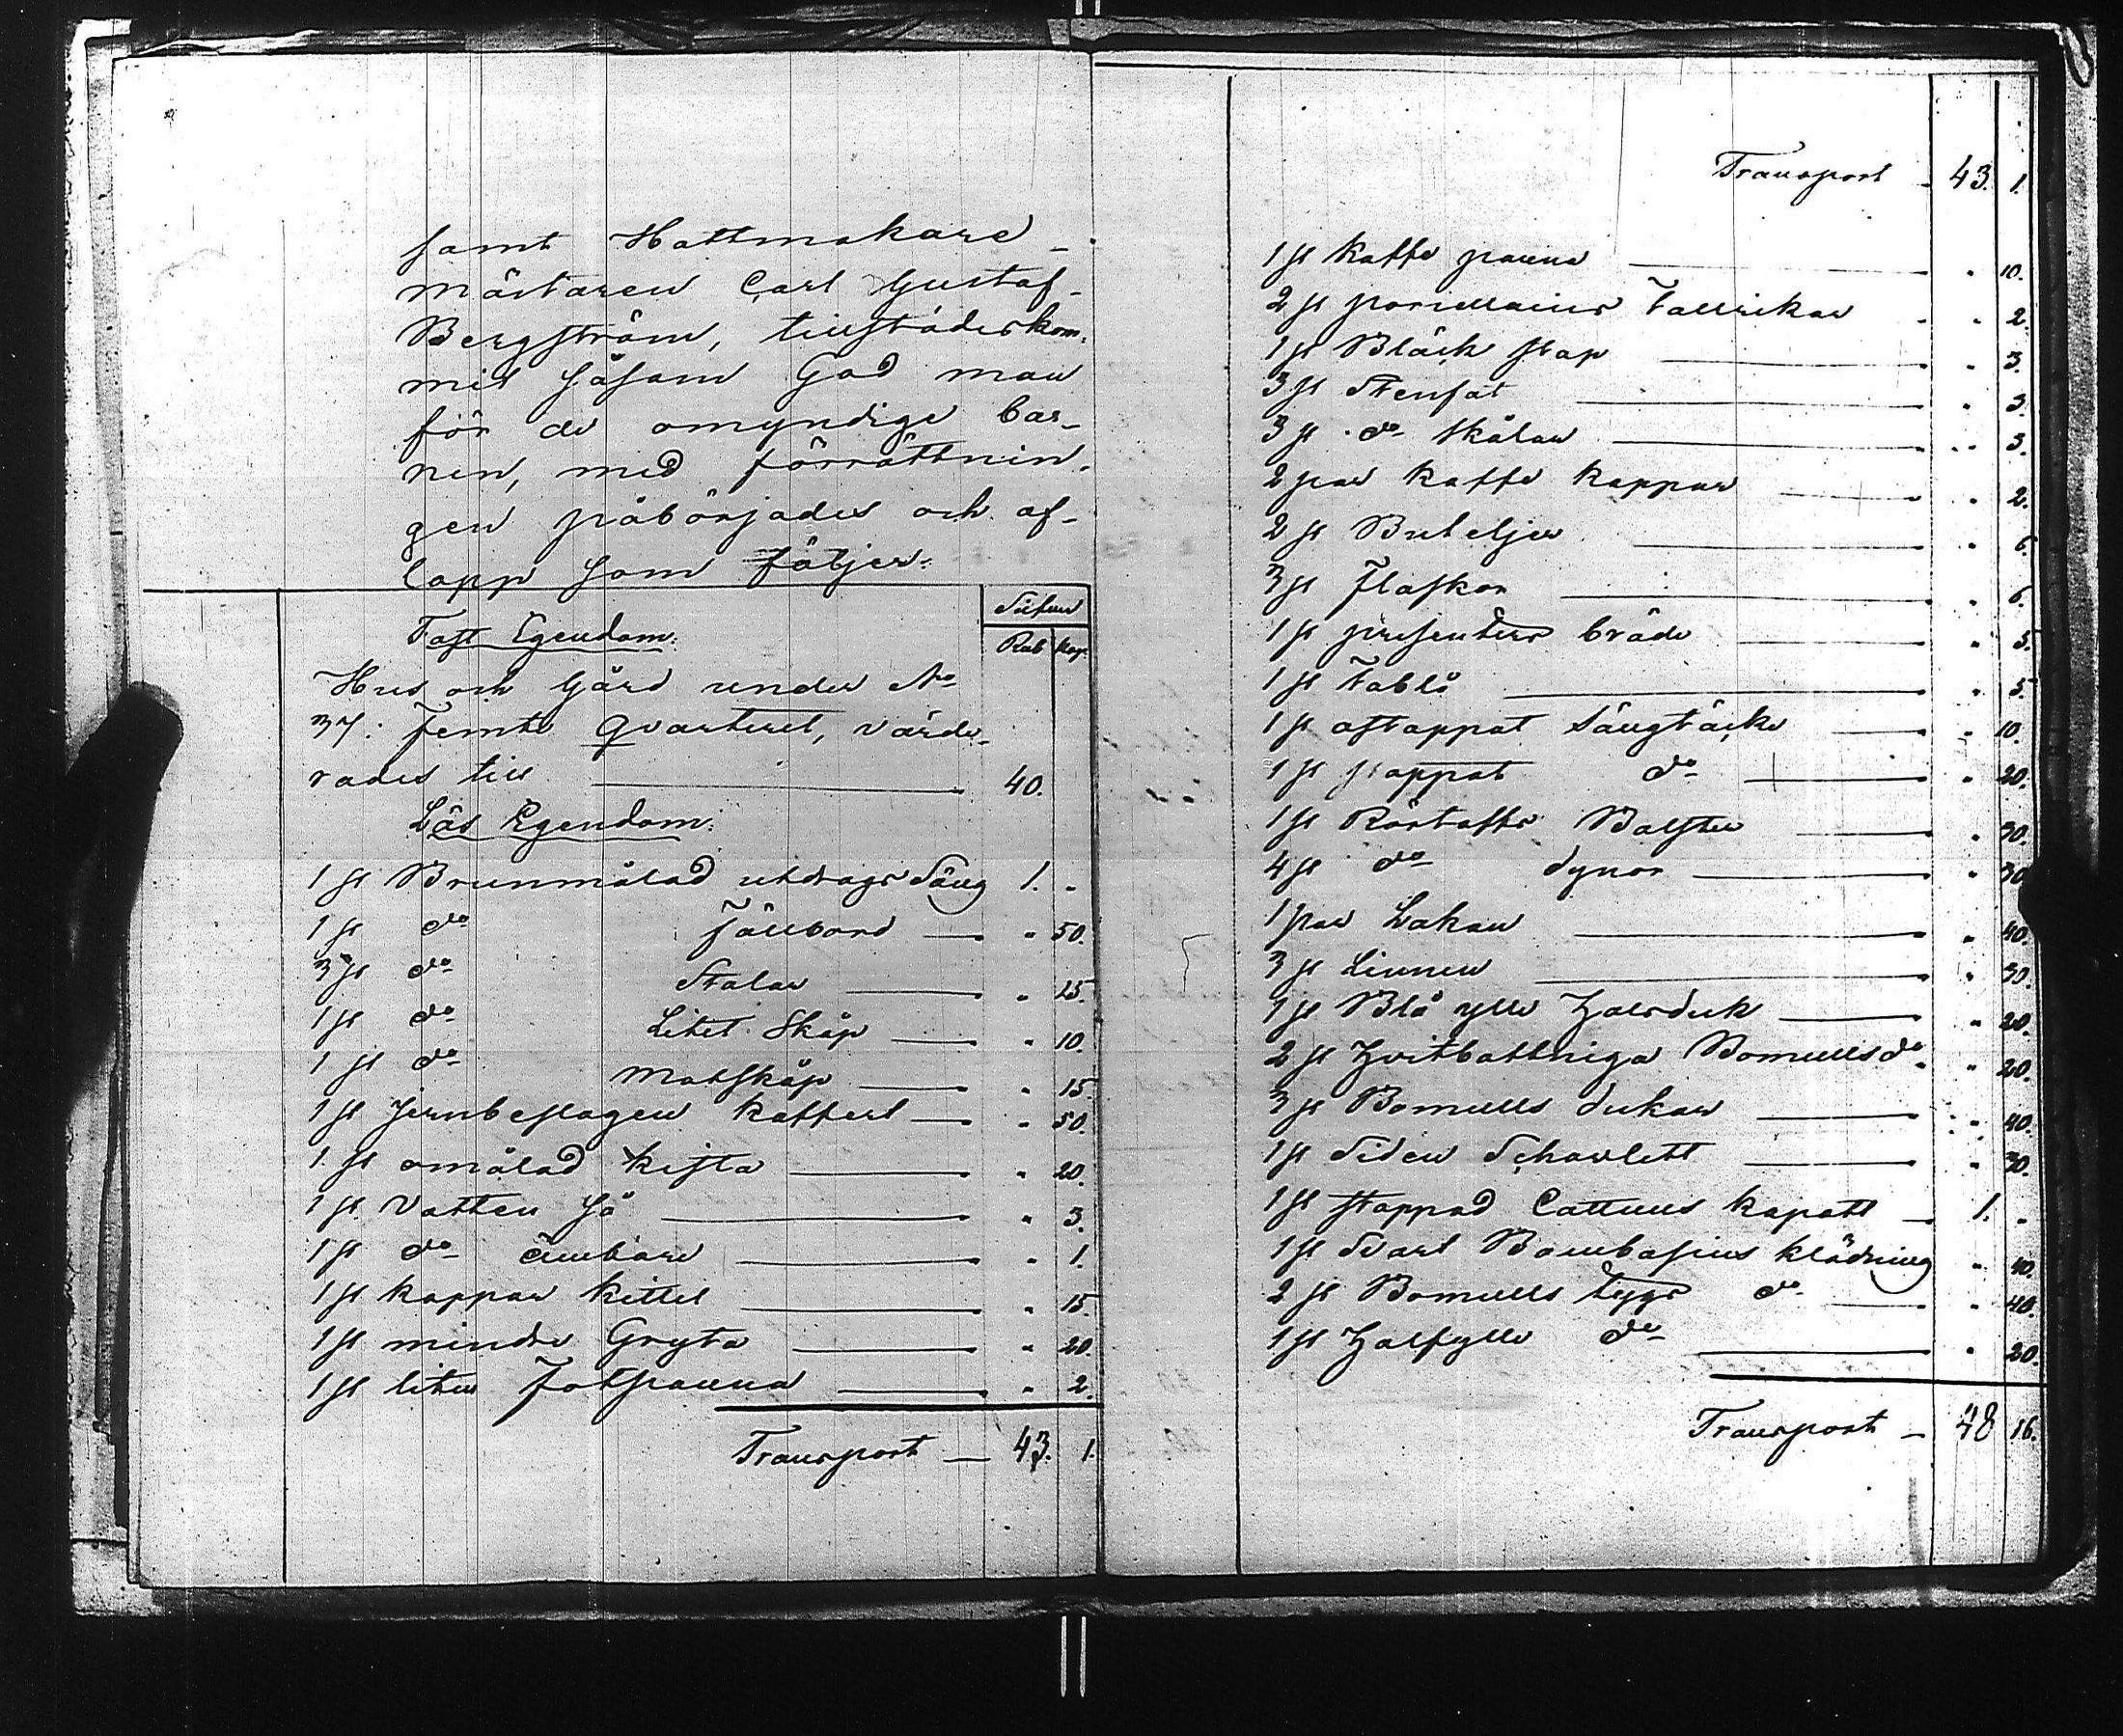 samt Hattmakare-
mästaren Carl Gustaf
Bergström, tillstädeskom-
mit såsom God man
för de omyndige bar-
nen, med förrättnin-
gen påbörjades och af-
lopp som följer:
Silfver
Fast Egendom: Rub Kop.
Hus och Gård under No
37. Femte Qvarteret, värde-
rades till 40.
Lös Egendom:
1 st Brunmålad utdrags Säng 1. "
1 st do Fällbord " 50.
3 st do Stolar " 15.
1 st do Litet Skåp " 10.
1 st do Matskåp " 15.
1 st Jernbeslagen Koffert " 50.
1 st omålad Kista " 20.
1 st Vatten så " 3.
1 st do ämbare " 1.
1 st koppar kittel " 15.
1 st mindre Gryta " 20.
1 st liten Fotpanna " 2.
Transport 43. 1.
Transport 43. 1.
1 st kaffe panna " 10.
2 st porcellains Tallrikar " 2.
1 st Bläck stop " 3.
3 st Stenfat " 3.
3 st do Skålar " 3.
2 par kaffe koppar " 2.
2 st Buteljer " 6.
3 st Flaskor " 6.
1 st presenter bräde " 5.
1 st Tablå " 5.
1 st ostoppat Sängtäcke " 10.
1 st stoppat do " 20.
1 st Rörtofts Bolster " 30.
4 st do dynor " 30
1 par Lakan " 40.
3 st Linnen " 30.
1 st Blå ylle Halsduk " 20.
2 st Hvitbottniga Bomulls do " 20.
3 st Bomulls dukar " 40.
1 st Siden Schavlett " 30.
1 st stoppad Cattuns kapott 1. "
1 st Svart Bombasins klädning " 40.
2 st Bomulls tygs do " 40.
1 st Halfylle do " 20.
Transport 48 16.